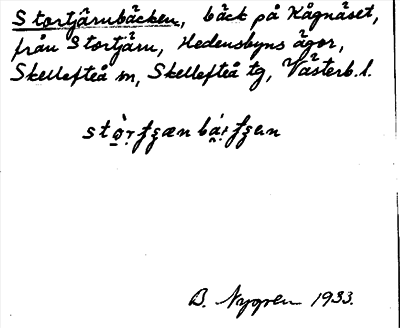 Stortjärnbäcken, bäck på Kågnäset,
från Stortjärn, Hedensbyns ägor,
Skellefteå m, Skellefteå tg, Västerb. l.
B. Nygren 1933.